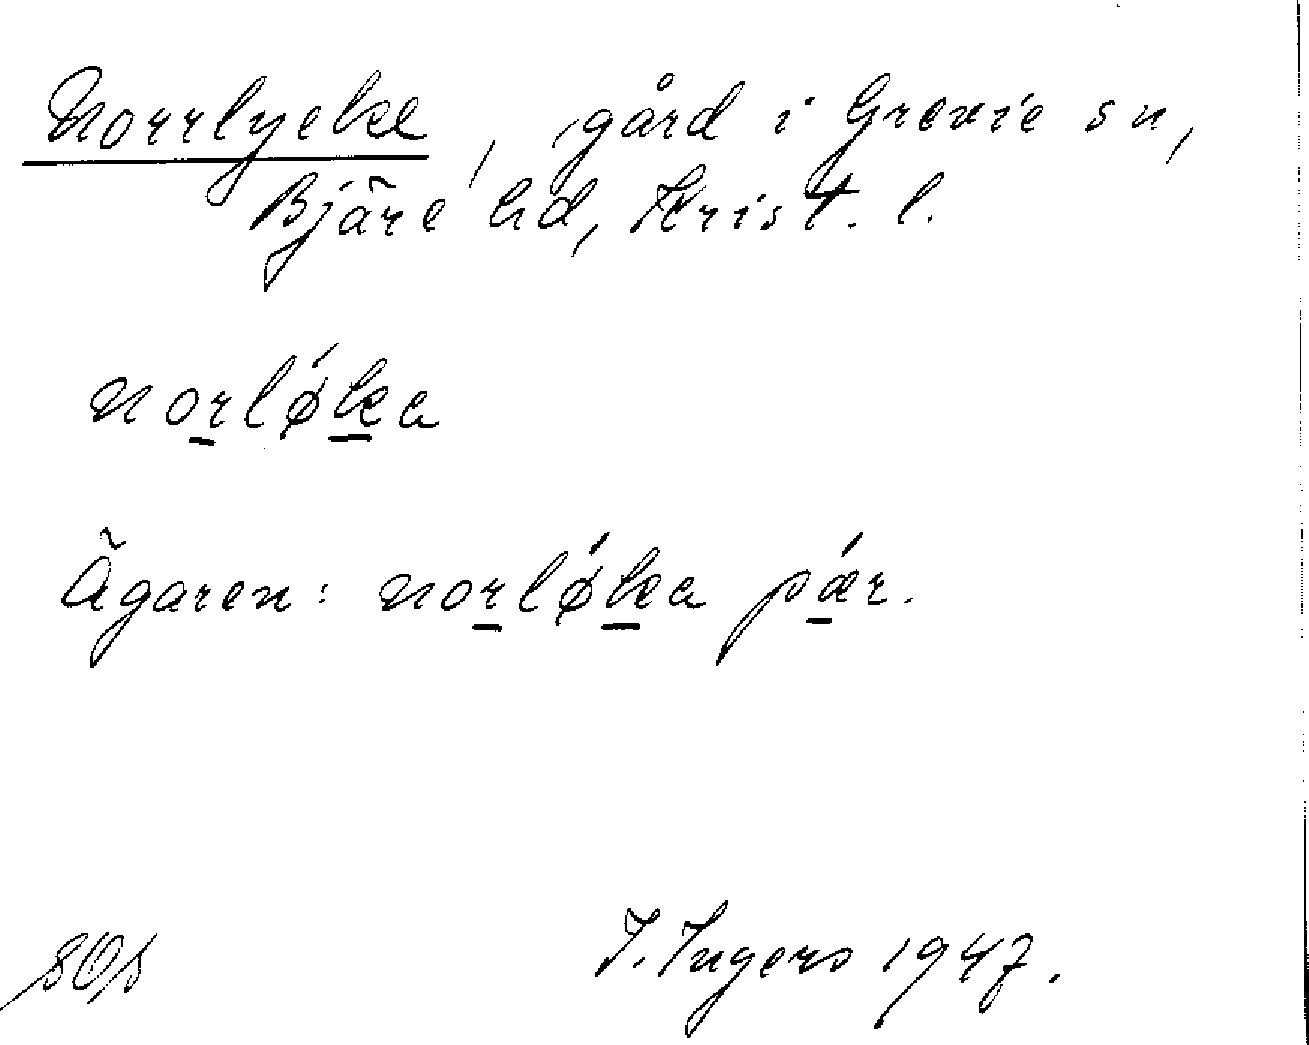 Norrlycke, gård i Grevie sn,
Bjäre hd, Krist. l.
norlø´ka
Ägaren: norlø´ka pær.
I. Ingers 1947.